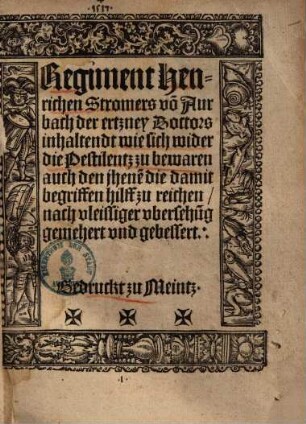 1517.
Regiment Hen=
richen Stromers vō Aur
bach der ertzney Doctors
inhaltendt wie sich wider
die Pestilentz zu bewaren
auch den jhenē die damit
begriffen hilff zu reichen /
nach vleissiger vbersehūg
gemehert vnd gebessert.·.
Gedruckt zu Meintz·
·1·